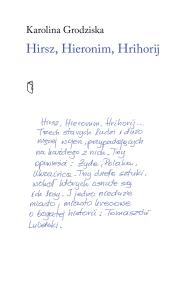 Karolina Grodziska
Hirsz, Hieronim, Hrihorij
Hirsz, Hieronim, Hrihorij...
Trzech starych ludzi i dużo
więcej wojen, przypadających
na każdego z nich. Trzy
opowieści: Żyda, Polaka,
Ukraińca. Trzy
wokół których osnute są
ich losy. I jedno nieduże
miasto, miasto kresowe
o bogatej historii: Tomaszów
Lubelski.